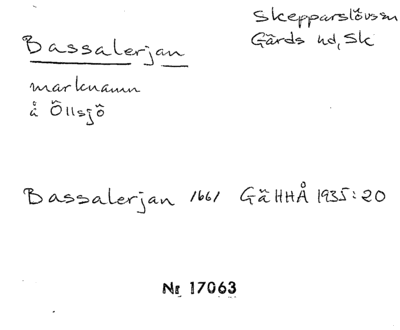 Bassalerjan
Skepparslövs sn
Gärds hd, Sk
marknamn
å Öllsjö
Bassalerjan 1661 GäHHÅ 1935:20
Nr 17063